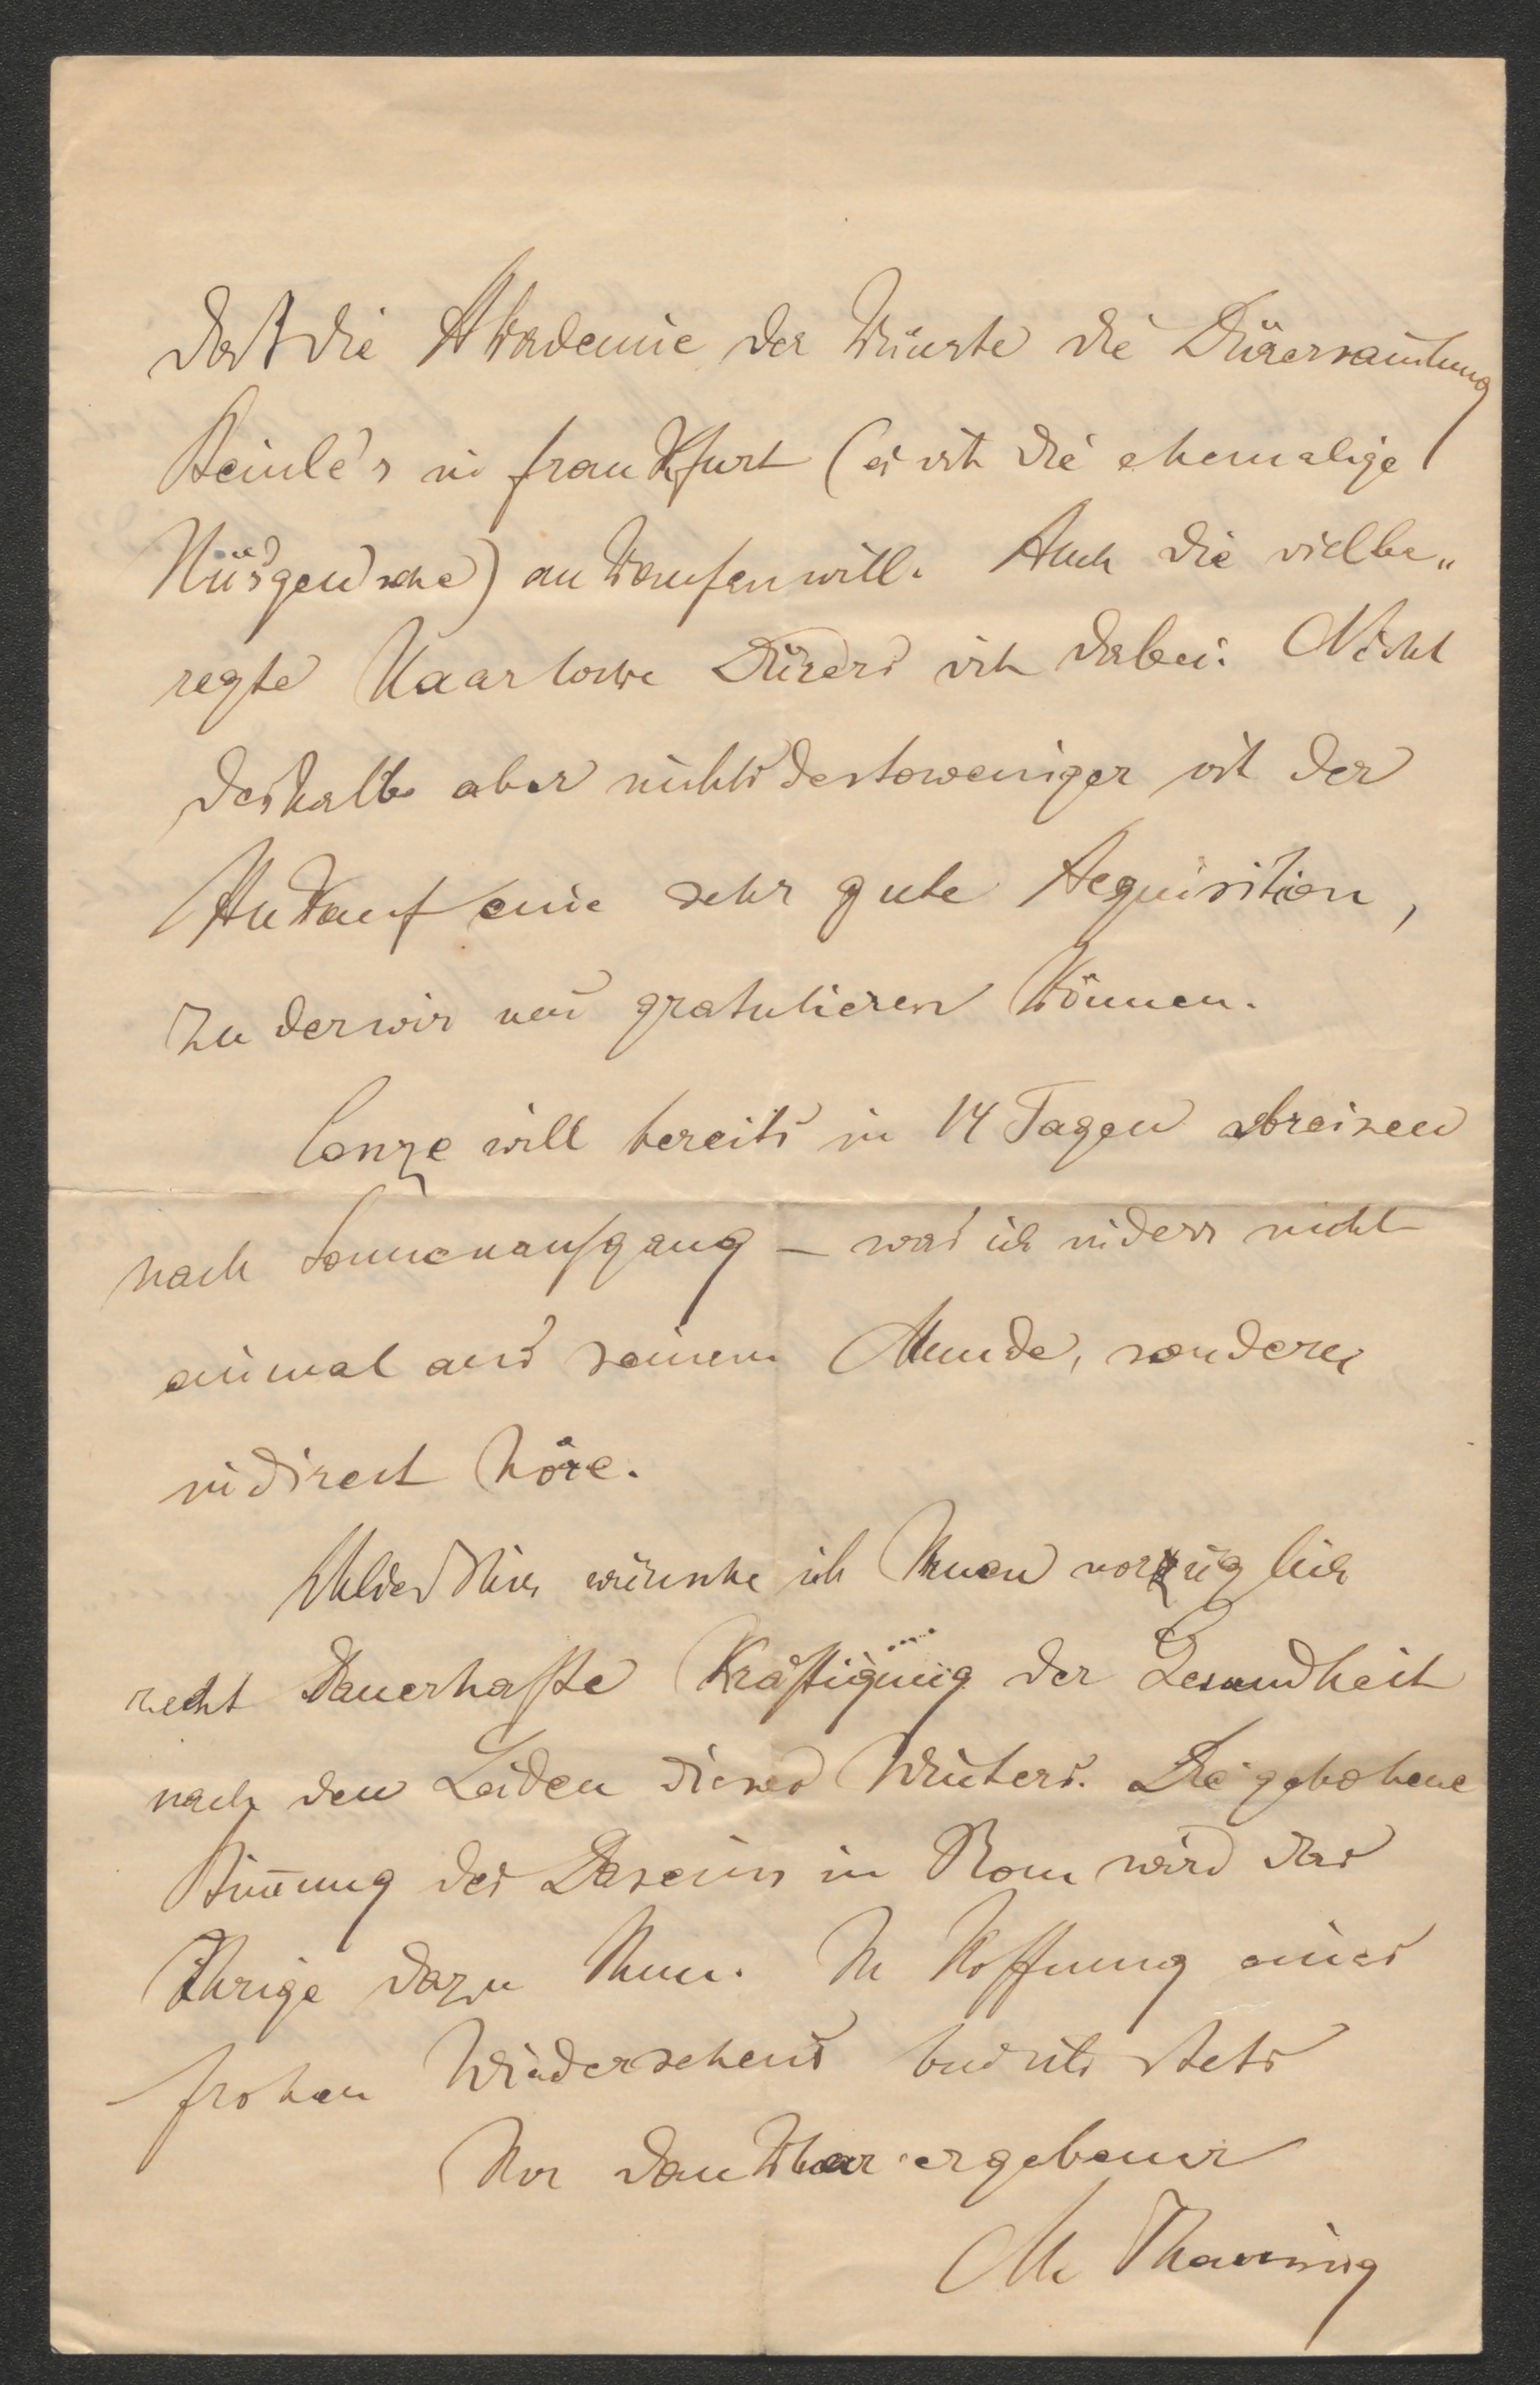 daß die Akademie der Künste die Dürersam̄lung
Steinle's in Frankfurt (es ist die ehemalige
Hüsgen'sche) ankaufen will. Auch die vielbe„
regte Haarlocke Dürers ist dabei. Nicht
deshalb aber nichtsdestoweniger ist der
Ankauf eine sehr gute Acquisition,
zu der wir uns gratulieren können.
Conze will bereits in 14 Tagen abreisen
nach Sonnenaufgang – was ich indess nicht
einmal aus seinem Munde, sondern
indirect höre.
wünsche ich Ihnen vorzüglich
recht dauerhafte Kräftigung der Gesundheit
nach den Leiden dieses Winters. Die gehobene
Stim̄ung des Daseins in Rom wird das
Ihrige dazu thun. In Hoffnung eines
frohen Wiedersehens stets
Ihr dankbar ergebener
M Thausing